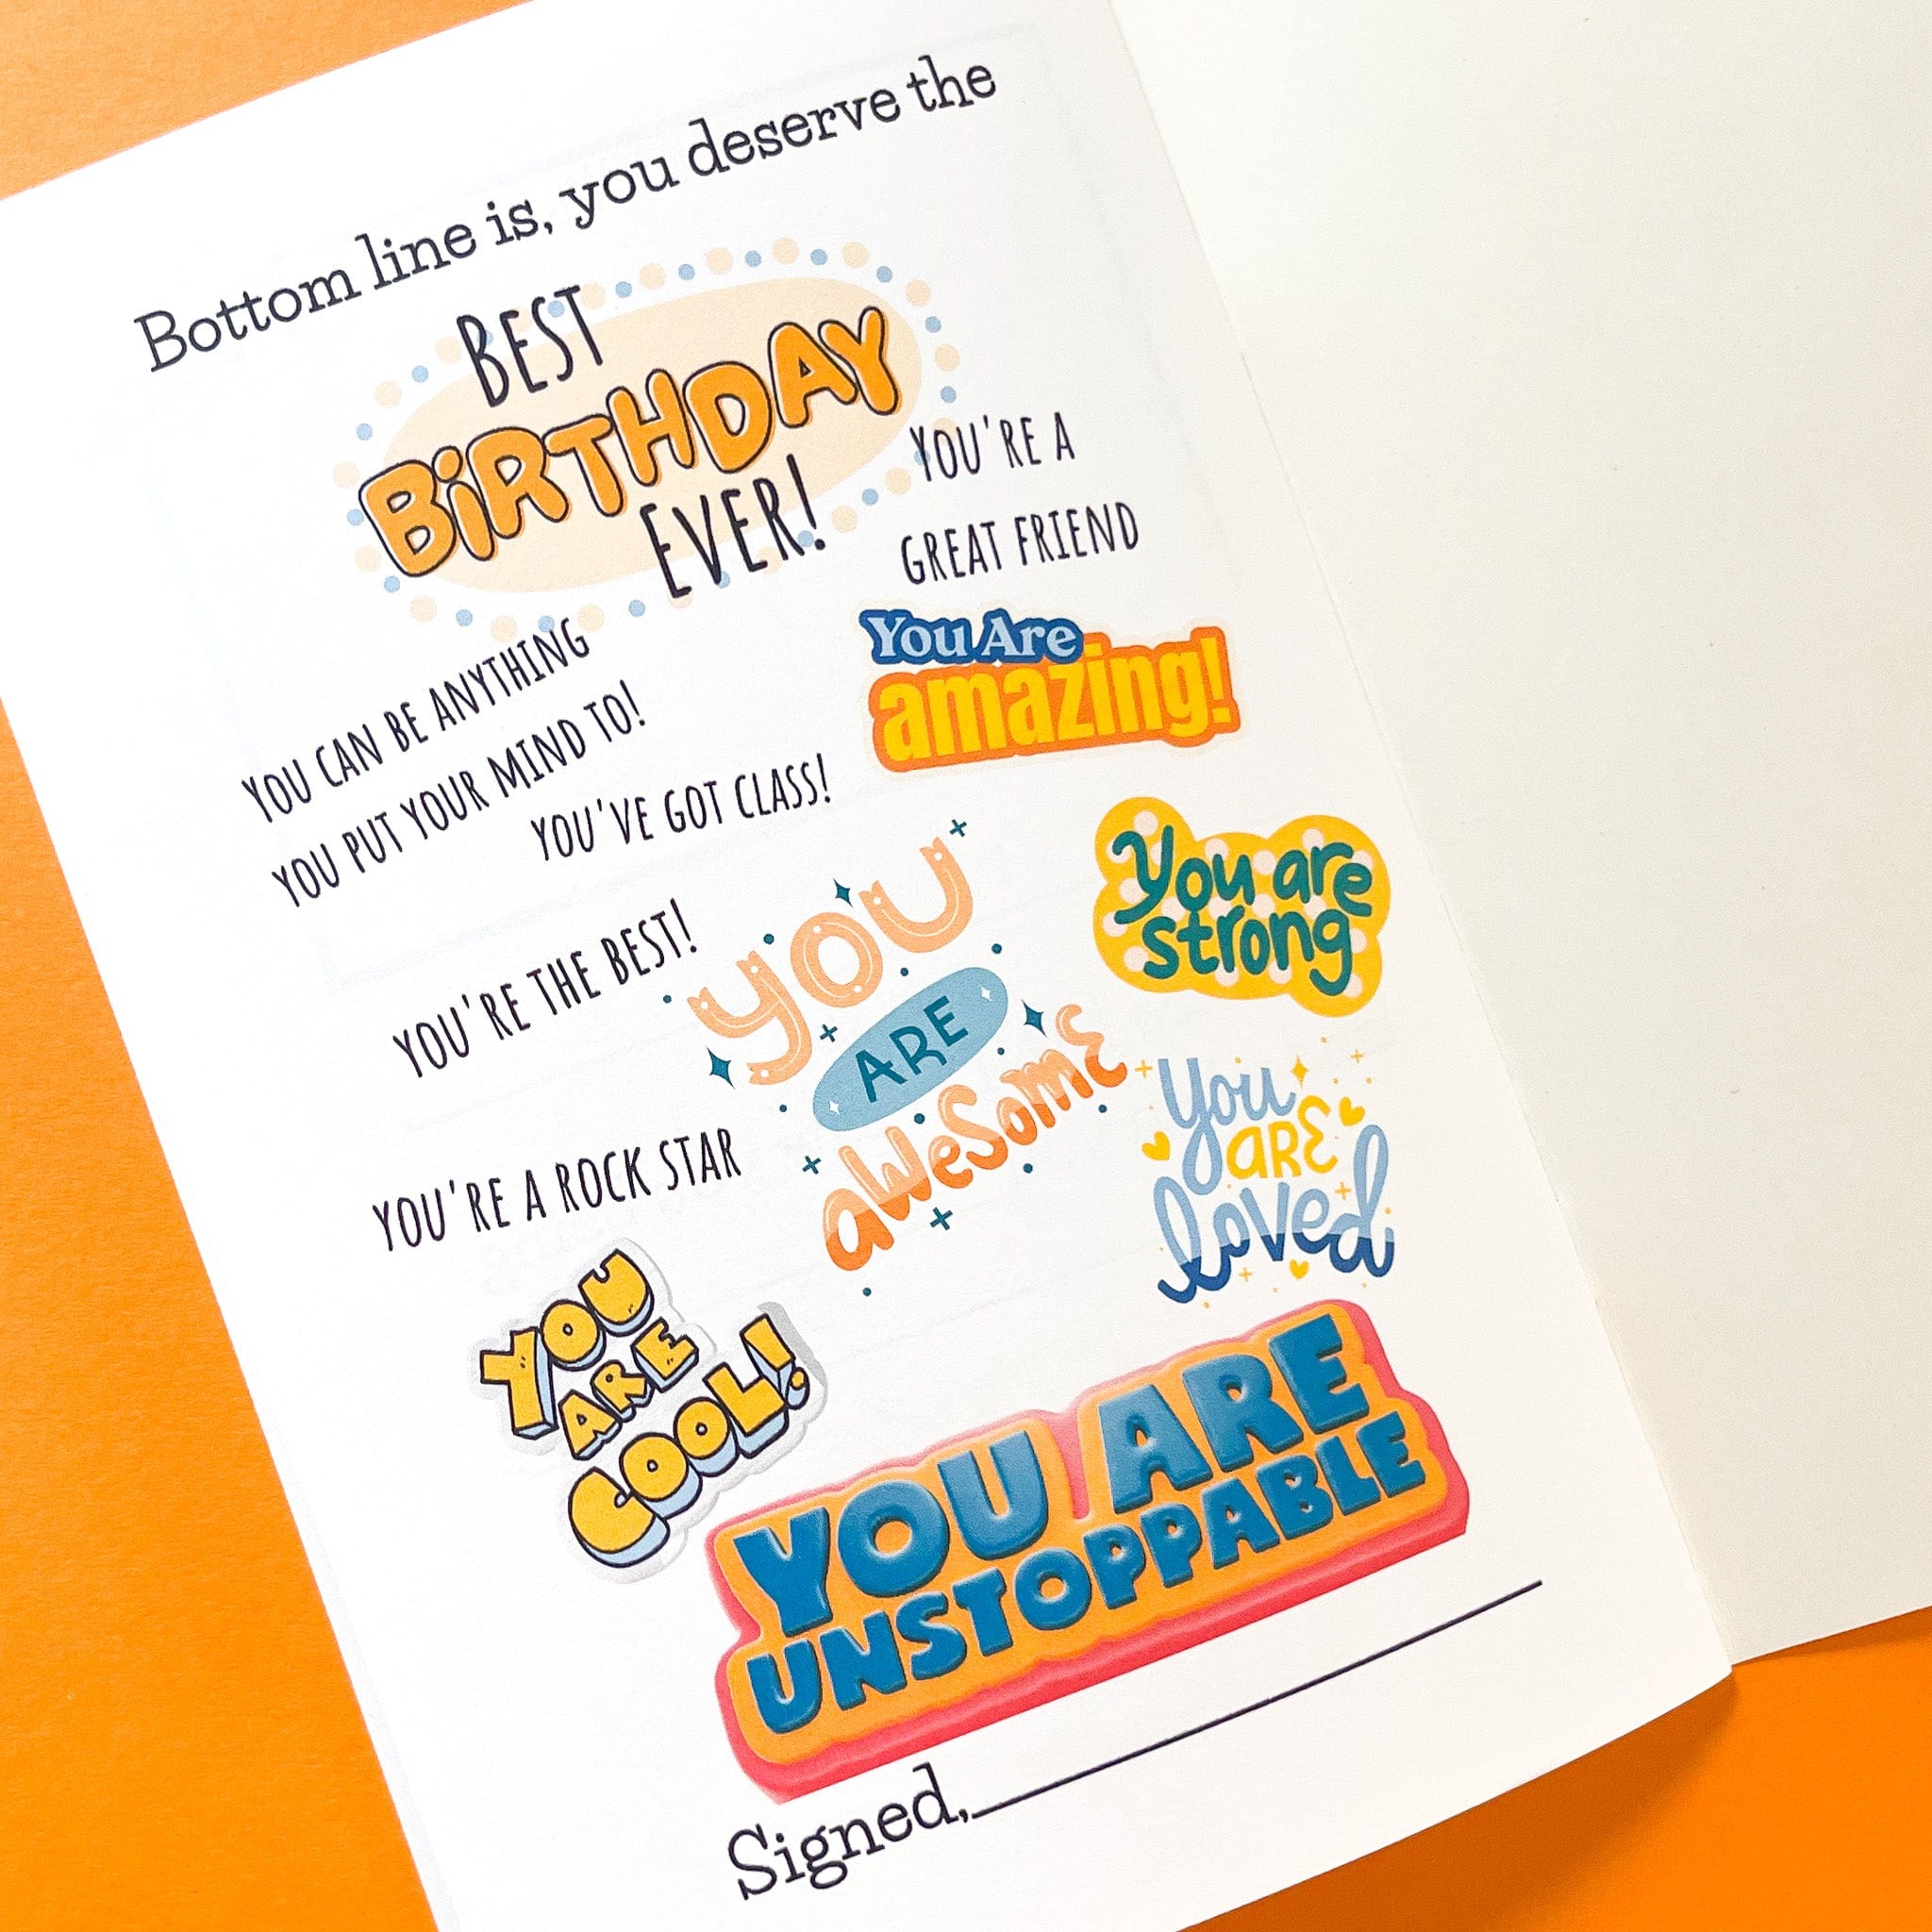 Bottom line is, you deserve the
BEST
BIRTHDAY
EVER!
YOU'RE A
GREAT FRIEND
You Are
amazing!
YOU CAN BE ANYTHING
YOU PUT YOUR MIND TO!
YOU'VE GOT CLASS!
You are
strong
YOU'RE THE BEST!
YOU
ARE
aWeSomE
You
ARE
loved
YOU'RE A ROCK STAR
YOU
ARE
COOL!
YOU ARE
UNSTOPPABLE
Signed,